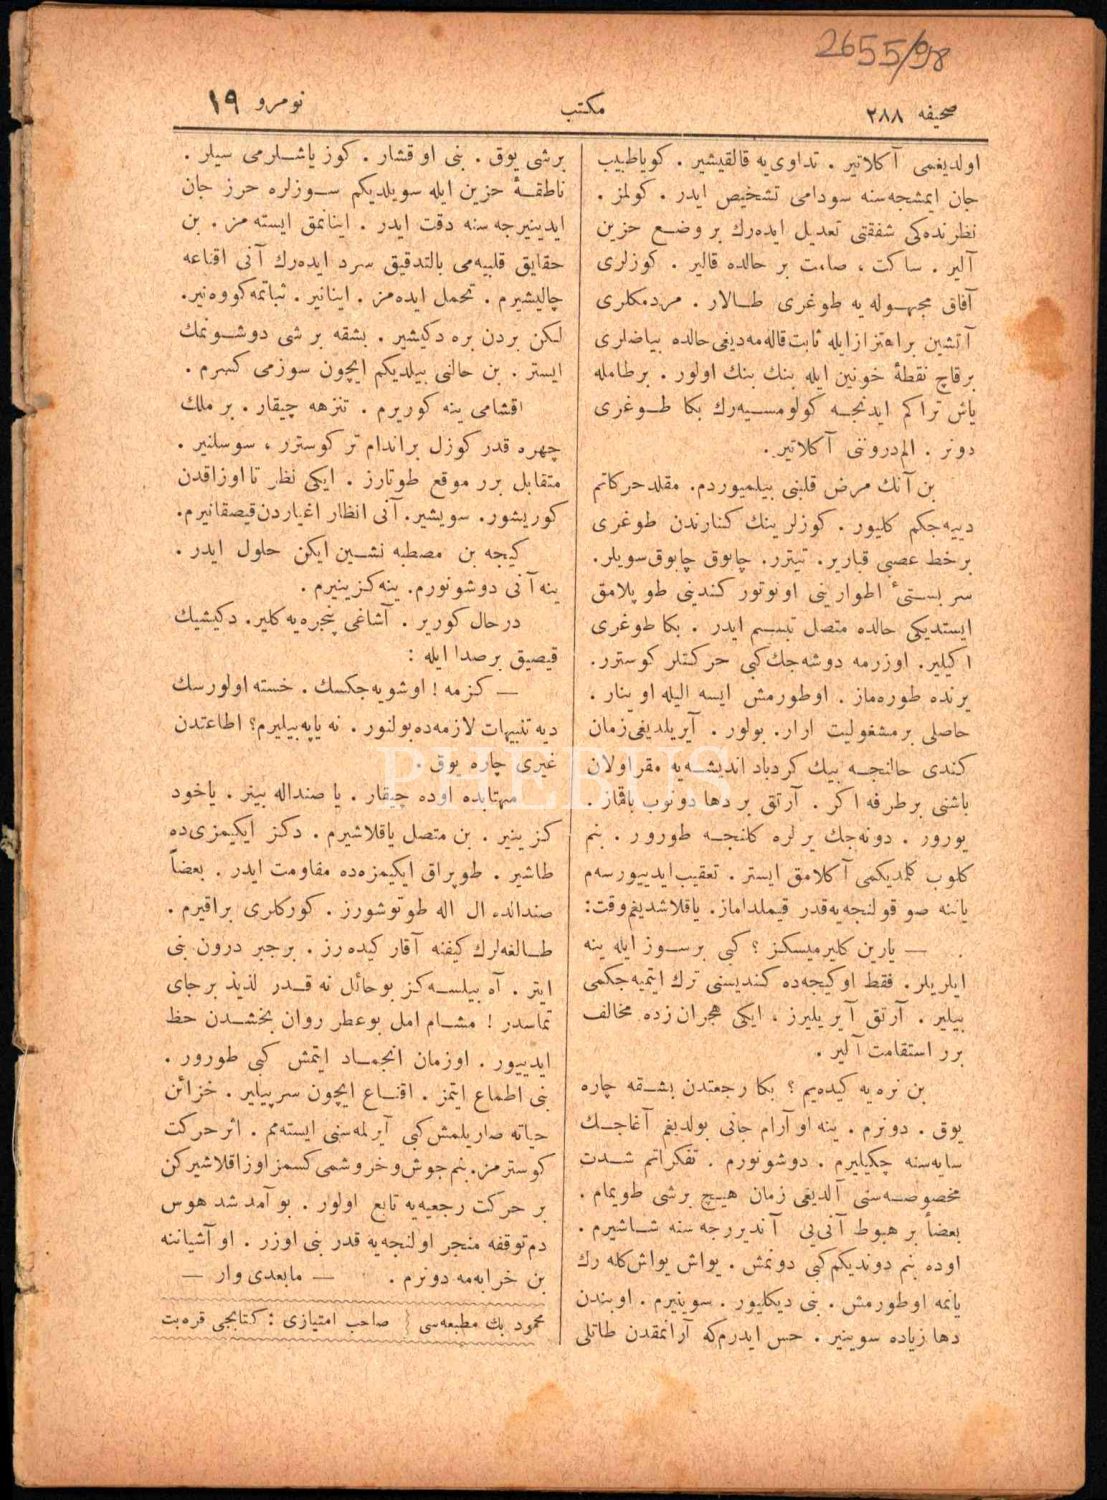 2655/98
صحیفه ٢٨٨
مکتب
نومرو ١٩
اولدیغمی آکلاتیر . تداوی‌یه قالقیشیر . کویا طبیب
جان ایمشجه‌سنه سودامی تشخیص ایدر . کولمز .
نظرنده‌کی شفقتی تعدیل ایده‌رك بر وضع حزین
آلیر . ساکت ، صامت بر حالده قالیر . کوزلری
آفاق مجهوله یه طوغری طالار . مردمکلری
آتشین بر اهتزاز ایله ثابت قاله‌مه‌دیغی حالده بیاضلری
برقاچ نقطهٔ خونین ایله بنك بنك اولور . برطامله
یاش تراکم ایدنجه کولومسیه‌رك بکا طوغری
دونر . الم‌دروننی آکلاتیر .
بن آنك مرض قلبنی بیلمیوردم. مقلد حرکاتم
دییه‌جکم کلیور . کوزلرینك کنارندن طوغری
برخط عصبی قباریر. تیترر. چابوق چابوق سویلر.
سربستیٔ اطوارینی اونوتور کندینی طوپلامق
ایستدیکی حالده متصل تبسم ایدر . بکا طوغری
اکیلیر. اوزرمه دوشه‌جك‌کبی حرکتلر کوسترر.
یرنده طوره‌ماز . اوطورمش ایسه الیله اوینار .
حاصلی برمشغولیت ارار. بولور . آیریلدیغی‌زمان
کندی حالنجه بیك کردباد اندیشه‌یه مقر اولان
باشنی برطرفه اکر . آرتق بر دها دونوب باقماز .
یورور . دونه‌جك یرلره کلنجه طورور . بنم
کلوب کلمدیکمی آکلامق ایستر . تعقیب ایدییورسه‌م
یاننه صوقولنجه‌یه‌قدر قیملداماز. یاقلاشدیغم‌وقت:
— یارین کلیرمیسکز ؟ کبی برسوز ایله ینه
ایلریلر. فقط اوکیجه‌ده کندیسنی ترك ایتمیه‌جکمی
بیلیر . آرتق آیریلیرز ، ایکی هجران زده مخالف
برر استقامت آلیر .
بن نره‌یه کیده‌یم ؟ بکا رجعتدن بشقه چاره
یوق . دونرم . ینه اوآرام جانی بولدیغم آغاجك
سایه‌سنه چکیلیرم . دوشونورم . تفکراتم شدت
مخصوصه‌سنی آلدیغی زمان هیچ برشی طویمام .
بعضاً بر هبوط آنی‌یی آندیررجه سنه شاشیرم .
اوده بنم دوندیکم‌کبی دونمش . یواش یواش‌کله رك
یانمه اوطورمش . بنی دیکلیور . سوینیرم . اوبندن
دها زیاده سوینیر . حس ایدرم‌که آرانمقدن طاتلی
برشی یوق . بنی اوقشار . کوز یاشلرمی سیلر .
ناطقهٔ حزین ایله سویلدیکم سوزلره حرز جان
ایدینیرجه سنه دقت ایدر . اینانمق ایسته مز . بن
حقایق قلبیه‌می بالتدقیق سرد ایده‌رك آنی اقناعه
چالیشیرم . تحمل ایده‌مز . اینانیر . ثباتمه‌کووه‌نیر.
لکن بردن بره دکیشیر . بشقه برشی دوشونمك
ایستر . بن حالنی بیلدیکم ایچون سوزمی کسرم .
اقشامی ینه کوریرم . تنزهه چیقار . بر ملك
چهره قدر کوزل براندام تر کوسترر ، سوسلنیر .
متقابل برر موقع طوتارز . ایکی نظر تا اوزاقدن
کوریشور. سویشیر. آنی انظار اغیاردن‌قیصقانیرم.
کیجه بن مصطبه نشین ایکن حلول ایدر .
ینه آنی دوشونورم. ینه کزینیرم .
درحال کوریر . آشاغی پنجره‌یه‌کلیر. دکیشیك
قیصیق برصدا ایله :
— کزمه ! اوشویه‌جکسك . خسته اولورسك
دیه تنبیهات لازمه‌ده بولنور . نه یاپه‌بیلیرم؟ اطاعتدن
غیری چاره یوق .
مهتابده اوده چیقار . یا صنداله بینر . یاخود
کزینیر . بن متصل یاقلاشیرم . دکز ایکیمزی‌ده
طاشیر . طوپراق ایکیمزه‌ده مقاومت ایدر . بعضاً
صندالده ال اله طوتوشورز . کورکلری براقیرم .
طالغه‌لرك کیفنه آقار کیده‌رز . برجبر درون بنی
ایتر . آه بیلسه‌کز بوحائل نه قدر لذیذ برجای
تماسدر ! مشام امل بوعطر روان بخشدن حظ
ایدییور . اوزمان انجماد ایتمش کبی طورور .
بنی اطماع ایتمز . اقناع ایچون سرپیلیر . خزائن
حیاته صاریلمش‌کبی آیرلمه‌سنی ایسته‌مم . اثر حرکت
کوسترمز. بنم‌جوش‌وخروشمی‌کسمز اوزاقلاشیرکن
بر حرکت رجعیه‌یه تابع اولور . بوآمدشد هوس
دم‌توقفه منجر اولنجه‌یه قدر بنی اوزر . او آشیاننه
بن خرابه‌مه دونرم . — مابعدی وار —
محمود بك مطبعه‌سی صاحب امتیازی : کتابجی قره‌بت
PHEBUS